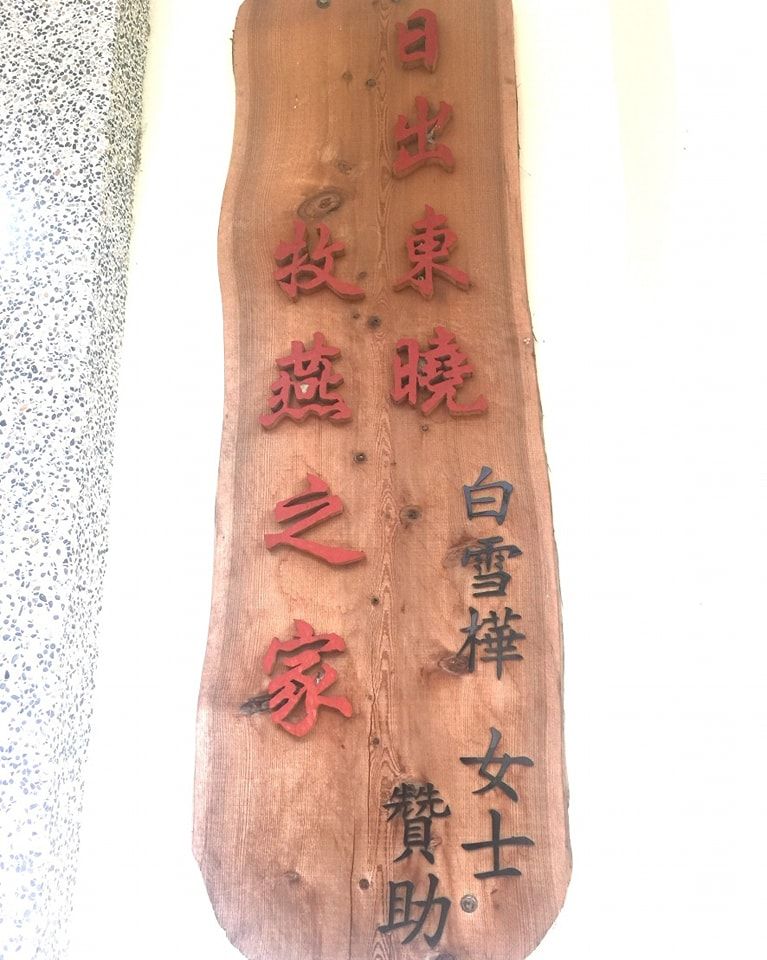 日出東曉
牧燕之家
白雪樺 女士
贊助